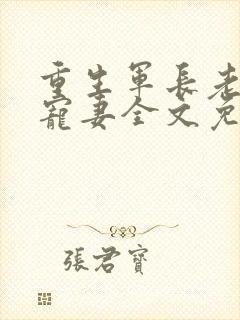 重生軍長老
寵妻全文免
張君寶